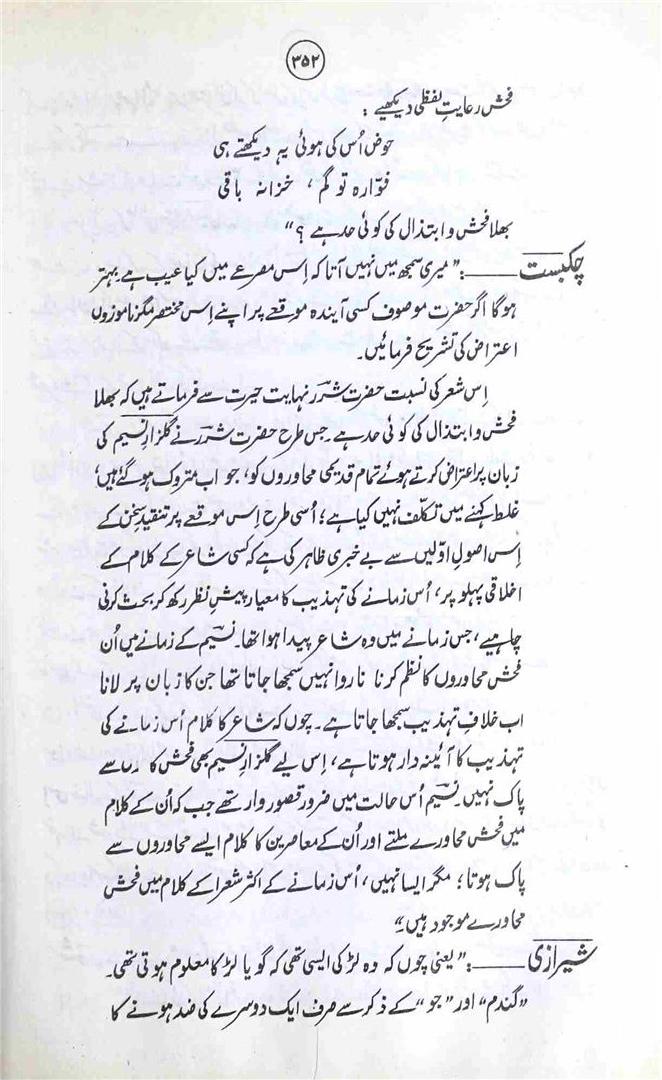 ۳۵۲
فحش رعایتِ لفظی دیکھیے :
حوض اُس کی ہوئی یہ دیکھتے ہی
فوّارہ تو گم ، خزانہ باقی
بھلا فحش و ابتذال کی کوئی حد ہے ؟"
چکبست ـــــ :" میری سمجھ میں نہیں آتا کہ اِس مصرعے میں کیا عیب ہے۔ بہتر
ہوگا اگر حضرت موصوف کسی آیندہ موقعے پر اپنے اِس مختصر مگر ناموزوں
اعتراض کی تشریح فرمائیں۔
اِس شعر کی نسبت حضرت شررؔ نہایت حیرت سے فرماتے ہیں کہ بھلا
فحش و ابتذال کی کوئی حد ہے۔ جس طرح حضرت شررؔ نے گلزارِ نسیم کی
زبان پر اعتراض کرتے ہوئے تمام قدیمی محاوروں کو، جو اب متروک ہو گئے ہیں،
غلط کہنے میں تکلّف نہیں کیا ہے؛ اُسی طرح اِس موقعے پر تنقیدِ سخن کے
اِس اصولِ اوّلیں سے بے خبری ظاہر کی ہے کہ کسی شاعر کے کلام کے
اخلاقی پہلو پر، اُس زمانے کی تہذیب کا معیار پیشِ نظر رکھ کر بحث کرنی
چاہیے، جس زمانے میں وہ شاعر پیدا ہوا تھا۔ نسیمؔ کے زمانے میں اُن
فحش محاوروں کا نظم کرنا ناروا نہیں سمجھا جاتا تھا جن کا زبان پر لانا
اب خلافِ تہذیب سمجھا جاتا ہے۔ چوں کہ شاعر کا کلام اُس زمانے کی
تہذیب کا آئنہ دار ہوتا ہے، اِس لیے گلزارِ نسیم بھی فحش کلام سے
پاک نہیں۔ نسیمؔ اُس حالت میں ضرور قصور وار تھے جب کہ اُن کے کلام
میں فحش محاورے ملتے اور اُن کے معاصرین کا کلام ایسے محاوروں سے
پاک ہوتا؛ مگر ایسا نہیں، اُس زمانے کے اکثر شعرا کے کلام میں فحش
محاورے موجود ہیں۔"
شیرازی ـــــ :" یعنی چوں کہ وہ لڑکی ایسی تھی کہ گویا لڑکا معلوم ہوتی تھی۔
"گندم" اور "جو" کے ذکر سے صرف ایک دوسرے کی ضد ہونے کا